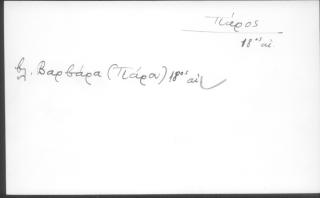 Πάρος
18ος αι.
βλ. Βαρβάρα (Πάρου) 18ος αι.